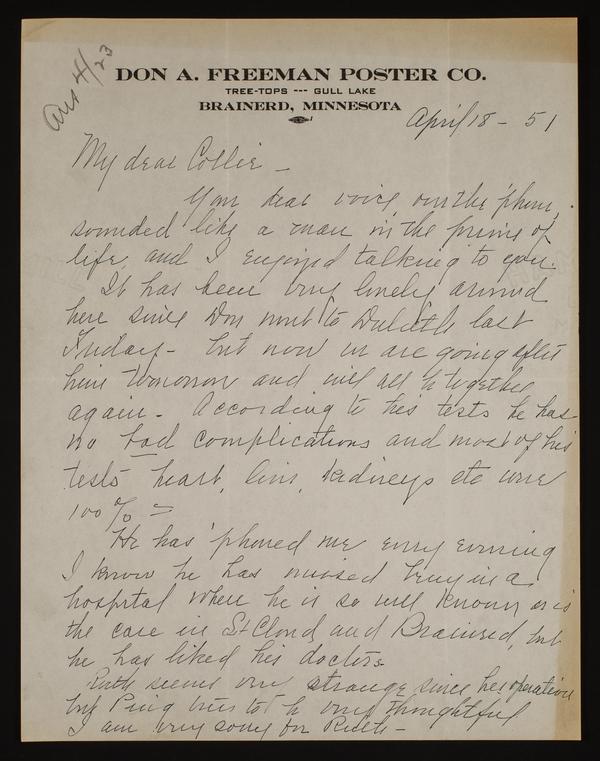 Ans 4/23
DON A. FREEMAN POSTER CO.
TREE-TOPS --- GULL LAKE
BRAINERD, MINNESOTA
April 18 - 51
My dear Collie -
Your dear voice over the 'phone,
sounded like a man in the prime of
life and I enjoyed talking to you.
It has been very lonely around
here since Don went to Duluth last
Friday - but now we are going after
him tomorrow and will all be together
again - According to his tests he has
no bad complications and most of his
tests heart, liver, kidneys etc were
100% =
He has 'phoned me every evening
I know he has missed being in a
hospital where he is so well known as is
the case in St Cloud and Brainerd, but
he has liked his doctors
Ruth seems very strange since her operation
but Ping tries to be very thoughtful
I am very sorry for Ruth -